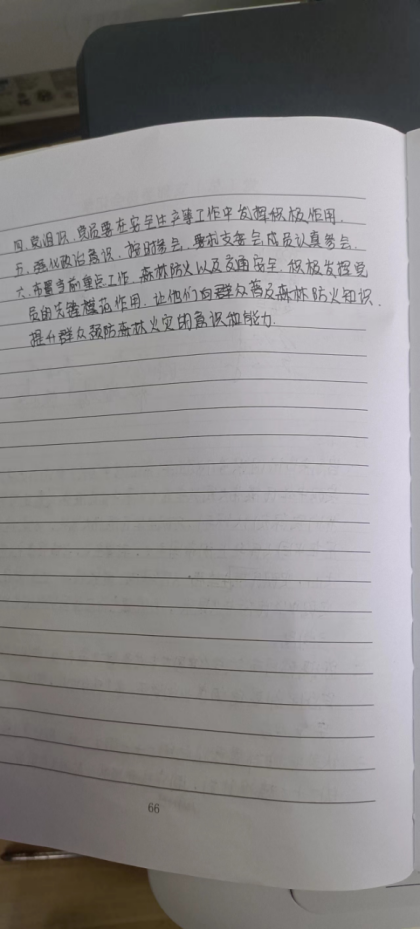 四、党组织、党员要在安全生产等工作中发挥积极作用.
五、强化政治意识、按时参会、要求支委会成员认真参会.
六、布置当前重点工作、森林防火以及交通安全、积极发挥党
员的先锋模范作用、让他们向群众普及森林防火知识、
提升群众预防森林火灾的意识和能力.
66